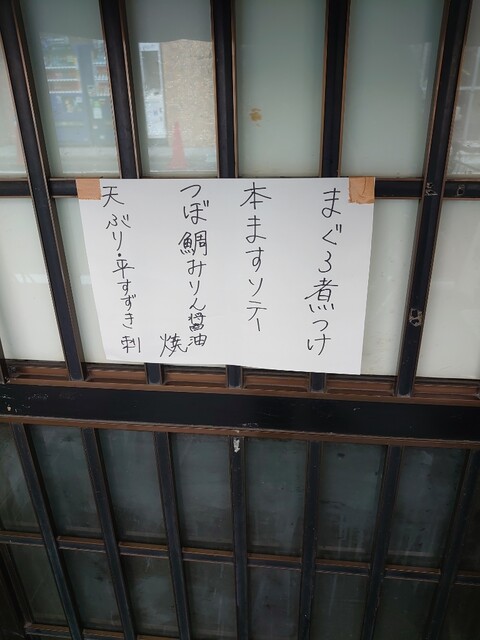 まぐろ煮つけ
本ますソテー
つぼ鯛みりん醤油焼
天ぶり・平すずき刺